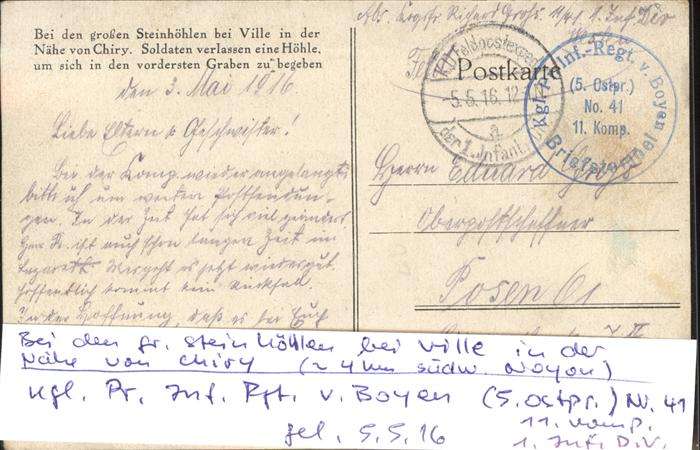 Bei den großen Steinhöhlen bei Ville in der
Nähe von Chiry. Soldaten verlassen eine Höhle,
um sich in den vordersten Graben zu begeben
den 3. Mai 1916.
Liebe Eltern u. Geschwister!
Bei der Komp. wieder angelangt,
bitte ich um weitere Postsendun-
gen. In der Zeit hat sich viel geändert.
ist auch schon lange Zeit im
Lazarett. Mir geht es jetzt wieder gut.
Hoffentlich kommt kein
In der Hoffnung, daß es bei Euch
Abs. Richard 11/41 1. Inf. Div
Postkarte
K.D. Feldpostexped.
-5.5.16. 12
a
der 1. Infant.
Kgl. Pr. Inf.-Regt. v. Boyen
(5. Ostpr.)
No. 41
11. Komp.
Briefstempel
Herrn Eduard
Oberpostschaffner
Posen O1
Bei den gr. Steinhöhlen bei Ville in der
Nähe von Chiry (~ 4 km südw. Noyon)
Kgl. Pr. Inf. Rgt. v. Boyen (5. Ostpr.) Nr. 41
11. Komp.
gel. 5.5.16 1. Inf. Div.